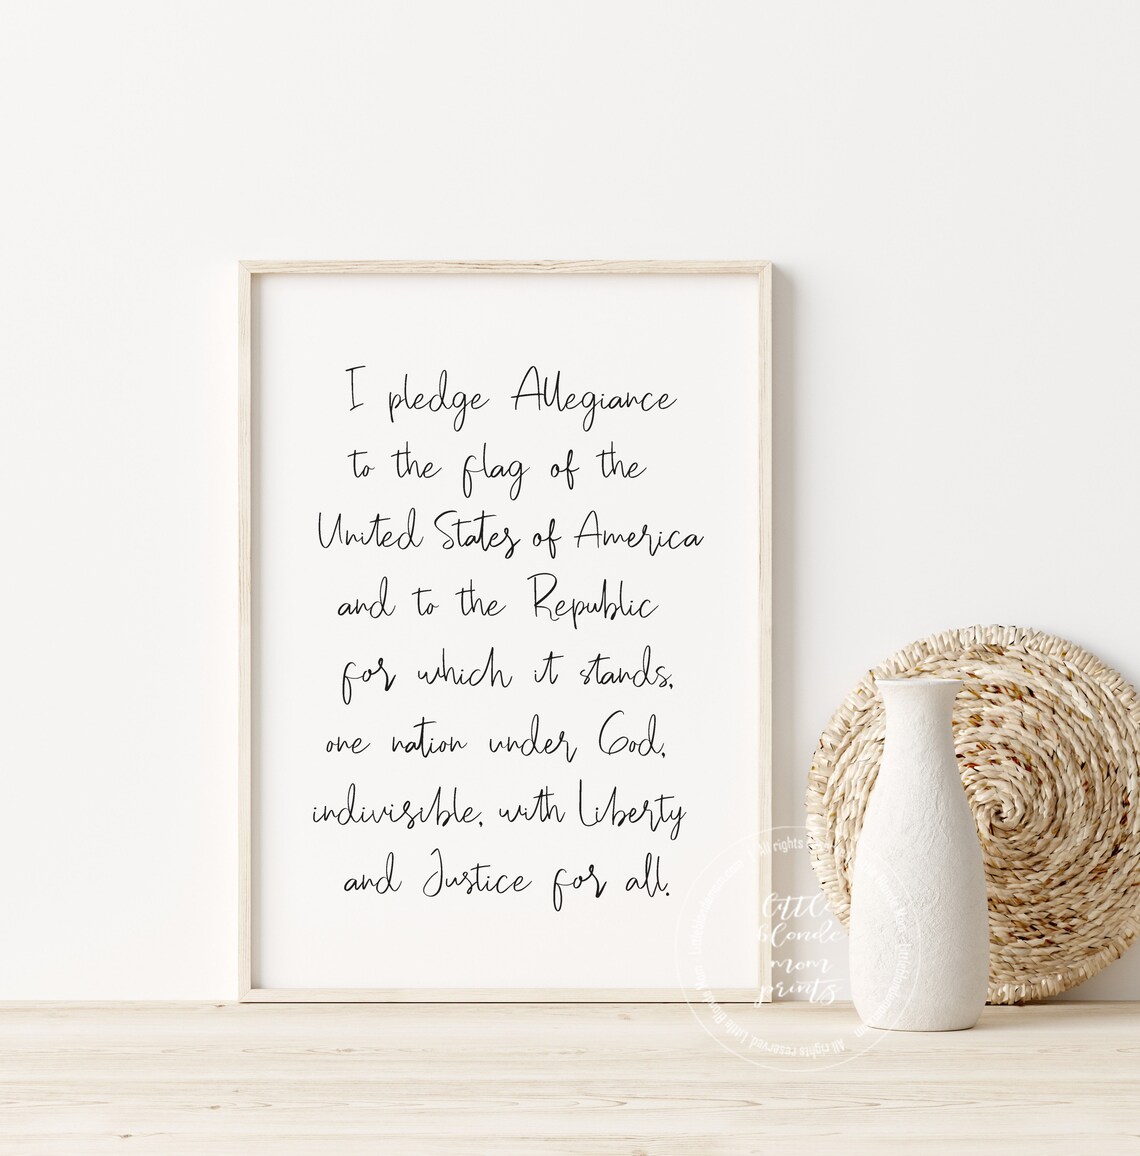 I pledge Allegiance
to the flag of the
United States of America
and to the Republic
for which it stands,
one nation under God,
indivisible, with Liberty
and Justice for all.
little
blonde
mom
prints
All rights reserved. Little Blonde Mom